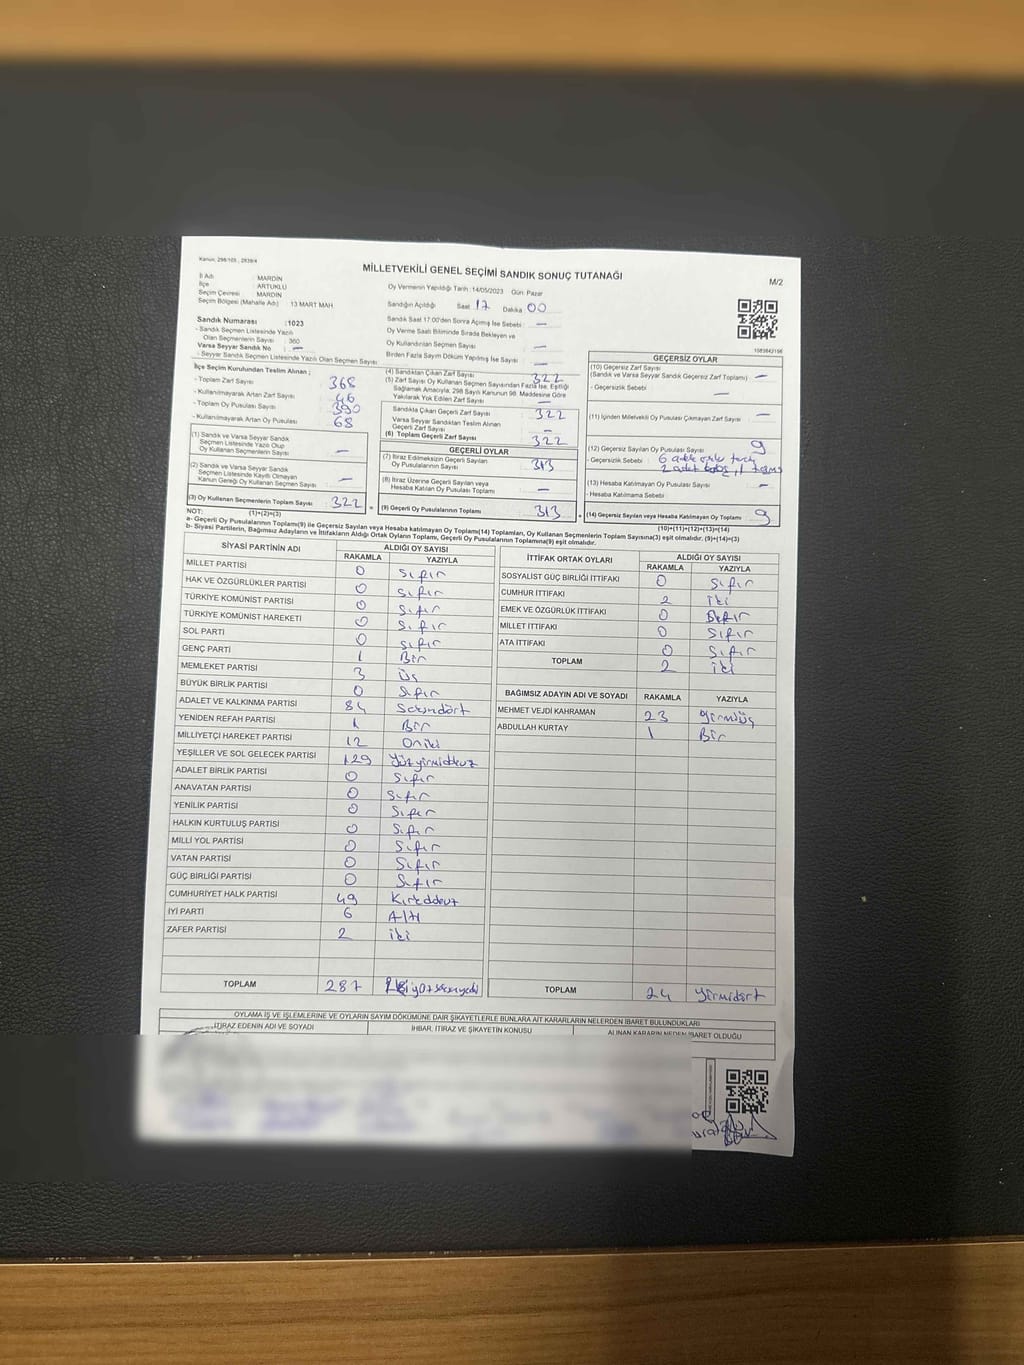 Kanun: 298/105 ; 2839/4
MİLLETVEKİLİ GENEL SEÇİMİ SANDIK SONUÇ TUTANAĞI
M/2
İl Adı : MARDİN
İlçe : ARTUKLU
Seçim Çevresi : MARDİN
Seçim Bölgesi (Mahalle Adı) 13 MART MAH
Oy Vermenin Yapıldığı Tarih :14/05/2023 Gün: Pazar
Sandığın Açıldığı Saat 17 Dakika 00
Sandık Numarası :1023
- Sandık Seçmen Listesinde Yazılı
Olan Seçmenlerin Sayısı : 360
Varsa Seyyar Sandık No : —
- Seyyar Sandık Seçmen Listesinde Yazılı Olan Seçmen Sayısı
Sandık Saat 17.00'den Sonra Açılmış İse Sebebi : —
Oy Verme Saati Bitiminde Sırada Bekleyen ve
Oy Kullandırılan Seçmen Sayısı : —
Birden Fazla Sayım Döküm Yapılmış İse Sayısı : —
İlçe Seçim Kurulundan Teslim Alınan ;
- Toplam Zarf Sayısı 368
- Kullanılmayarak Artan Zarf Sayısı 46
- Toplam Oy Pusulası Sayısı 390
- Kullanılmayarak Artan Oy Pusulası 68
(1) Sandık ve Varsa Seyyar Sandık
Seçmen Listesinde Yazılı Olup
Oy Kullanan Seçmenlerin Sayısı —
(2) Sandık ve Varsa Seyyar Sandık
Seçmen Listesinde Kayıtlı Olmayan
Kanun Gereği Oy Kullanan Seçmen Sayısı —
(3) Oy Kullanan Seçmenlerin Toplam Sayısı 322
(1)+(2)=(3)
(4) Sandıktan Çıkan Zarf Sayısı 322
(5) Zarf Sayısı Oy Kullanan Seçmen Sayısından Fazla İse, Eşitliği
Sağlamak Amacıyla; 298 Sayılı Kanunun 98. Maddesine Göre
Yakılarak Yok Edilen Zarf Sayısı —
Sandıkta Çıkan Geçerli Zarf Sayısı 322
Varsa Seyyar Sandıktan Teslim Alınan
Geçerli Zarf Sayısı —
(6) Toplam Geçerli Zarf Sayısı 322
GEÇERLİ OYLAR
(7) İtiraz Edilmeksizin Geçerli Sayılan
Oy Pusulalarının Sayısı 313
(8) İtiraz Üzerine Geçerli Sayılan veya
Hesaba Katılan Oy Pusulası Toplamı —
(9) Geçerli Oy Pusulalarının Toplamı 313
GEÇERSİZ OYLAR
(10) Geçersiz Zarf Sayısı
(Sandık ve Varsa Seyyar Sandık Geçersiz Zarf Toplamı) —
- Geçersizlik Sebebi —
(11) İçinden Milletvekili Oy Pusulası Çıkmayan Zarf Sayısı —
(12) Geçersiz Sayılan Oy Pusulası Sayısı 9
- Geçersizlik Sebebi : 6 adet
2 adet boş, 1
(13) Hesaba Katılmayan Oy Pusulası Sayısı —
- Hesaba Katılmama Sebebi
(14) Geçersiz Sayılan veya Hesaba Katılmayan Oy Toplamı 9
(10)+(11)+(12)+(13)=(14)
NOT:
a- Geçerli Oy Pusulalarının Toplamı(9) ile Geçersiz Sayılan veya Hesaba katılmayan Oy Toplamı(14) Toplamları, Oy Kullanan Seçmenlerin Toplam Sayısına(3) eşit olmalıdır. (9)+(14)=(3)
b- Siyasi Partilerin, Bağımsız Adayların ve İttifakların Aldığı Ortak Oyların Toplamı, Geçerli Oy Pusulalarının Toplamına(9) eşit olmalıdır.
SİYASİ PARTİNİN ADI ALDIĞI OY SAYISI
RAKAMLA YAZIYLA
MİLLET PARTİSİ 0 Sıfır
HAK VE ÖZGÜRLÜKLER PARTİSİ 0 Sıfır
TÜRKİYE KOMÜNİST PARTİSİ 0 Sıfır
TÜRKİYE KOMÜNİST HAREKETİ 0 Sıfır
SOL PARTİ 0 Sıfır
GENÇ PARTİ 1 Bir
MEMLEKET PARTİSİ 3 Üç
BÜYÜK BİRLİK PARTİSİ 0 Sıfır
ADALET VE KALKINMA PARTİSİ 84 Seksendört
YENİDEN REFAH PARTİSİ 1 Bir
MİLLİYETÇİ HAREKET PARTİSİ 12 Oniki
YEŞİLLER VE SOL GELECEK PARTİSİ 129 Yüzyirmidokuz
ADALET BİRLİK PARTİSİ 0 Sıfır
ANAVATAN PARTİSİ 0 Sıfır
YENİLİK PARTİSİ 0 Sıfır
HALKIN KURTULUŞ PARTİSİ 0 Sıfır
MİLLİ YOL PARTİSİ 0 Sıfır
VATAN PARTİSİ 0 Sıfır
GÜÇ BİRLİĞİ PARTİSİ 0 Sıfır
CUMHURİYET HALK PARTİSİ 49 Kırkdokuz
İYİ PARTİ 6 Altı
ZAFER PARTİSİ 2 iki
TOPLAM 287 ikiyüzseksenyedi
İTTİFAK ORTAK OYLARI ALDIĞI OY SAYISI
RAKAMLA YAZIYLA
SOSYALİST GÜÇ BİRLİĞİ İTTİFAKI 0 Sıfır
CUMHUR İTTİFAKI 2 iki
EMEK VE ÖZGÜRLÜK İTTİFAKI 0 Sıfır
MİLLET İTTİFAKI 0 Sıfır
ATA İTTİFAKI 0 Sıfır
TOPLAM 2 iki
BAĞIMSIZ ADAYIN ADI VE SOYADI RAKAMLA YAZIYLA
MEHMET VEJDİ KAHRAMAN 23 Yirmiüç
ABDULLAH KURTAY 1 Bir
TOPLAM 24 Yirmidört
OYLAMA İŞ VE İŞLEMLERİNE VE OYLARIN SAYIM DÖKÜMÜNE DAİR ŞİKAYETLERLE BUNLARA AİT KARARLARIN NELERDEN İBARET BULUNDUKLARI
İTİRAZ EDENİN ADI VE SOYADI İHBAR, İTİRAZ VE ŞİKAYETİN KONUSU ALINAN KARARIN NEDEN İBARET OLDUĞU